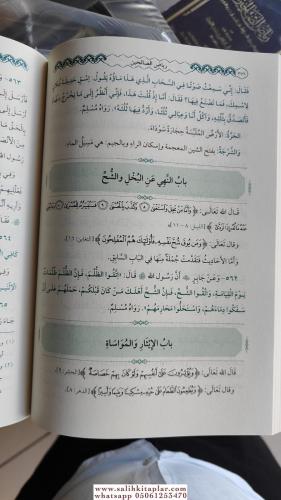 رياض الصالحين
فَقَالَ: إِنِّي سَمِعْتُ صَوْتًا فِي السَّحَابِ الَّذِي هَذَا مَاؤُهُ يَقُولُ: اسْقِ حَدِيقَةَ فُلَانٍ
لِاسْمِكَ، فَمَا تَصْنَعُ فِيهَا؟ فَقَالَ: أَمَّا إِذْ قُلْتَ هَذَا، فَإِنِّي أَنْظُرُ إِلَى مَا يَخْرُجُ مِنْهَا
فَأَتَصَدَّقُ بِثُلُثِهِ، وَآكُلُ أَنَا وَعِيَالِي ثُلُثًا، وَأَرُدُّ فِيهَا ثُلُثَهُ». رَوَاهُ مُسْلِمٌ.
الحَرَّةُ: الأَرْضُ المُلْبَسَةُ حِجَارَةً سَوْدَاءَ.
وَالشَّرْجَةُ: بفتح الشين المعجمة وإسكان الراء وبالجيم: هي مَسِيلُ الماء.
بَابُ النَّهْيِ عَنِ البُخْلِ وَالشُّحِّ
قال الله تعالى: ﴿وَأَمَّا مَنْ بَخِلَ وَاسْتَغْنَى ۝ وَكَذَّبَ بِالْحُسْنَى ۝ فَسَنُيَسِّرُهُ لِلْعُسْرَى ۝ وَمَا يُغْنِي
عَنْهُ مَالُهُ إِذَا تَرَدَّى﴾ [الليل: ٨-١١].
وقال تعالى: ﴿وَمَنْ يُوقَ شُحَّ نَفْسِهِ فَأُولَئِكَ هُمُ الْمُفْلِحُونَ﴾ [التغابن: ١٦].
وَأَمَّا الأحاديثُ فَتَقَدَّمَتْ جُمْلَةٌ مِنْهَا فِي البَابِ السَّابِقِ.
٥٦٣- وَعَنْ جَابِرٍ ﵁ أَنَّ رَسُولَ اللهِ ﷺ قَالَ: «اتَّقُوا الظُّلْمَ، فَإِنَّ الظُّلْمَ ظُلُمَاتٌ
يَوْمَ القِيَامَةِ، وَاتَّقُوا الشُّحَّ، فَإِنَّ الشُّحَّ أَهْلَكَ مَنْ كَانَ قَبْلَكُمْ، حَمَلَهُمْ عَلَى أَنْ
سَفَكُوا دِمَاءَهُمْ، وَاسْتَحَلُّوا مَحَارِمَهُمْ». رَوَاهُ مُسْلِمٌ.
بَابُ الإِيثَارِ وَالمُوَاسَاةِ
قال الله تعالى: ﴿وَيُؤْثِرُونَ عَلَى أَنْفُسِهِمْ وَلَوْ كَانَ بِهِمْ خَصَاصَةٌ﴾ [الحشر: ٩].
وقال تعالى: ﴿وَيُطْعِمُونَ الطَّعَامَ عَلَى حُبِّهِ مِسْكِينًا وَيَتِيمًا وَأَسِيرًا﴾ [الدهر: ٨].
www.salihkitaplar.com
whatsapp 05061253470